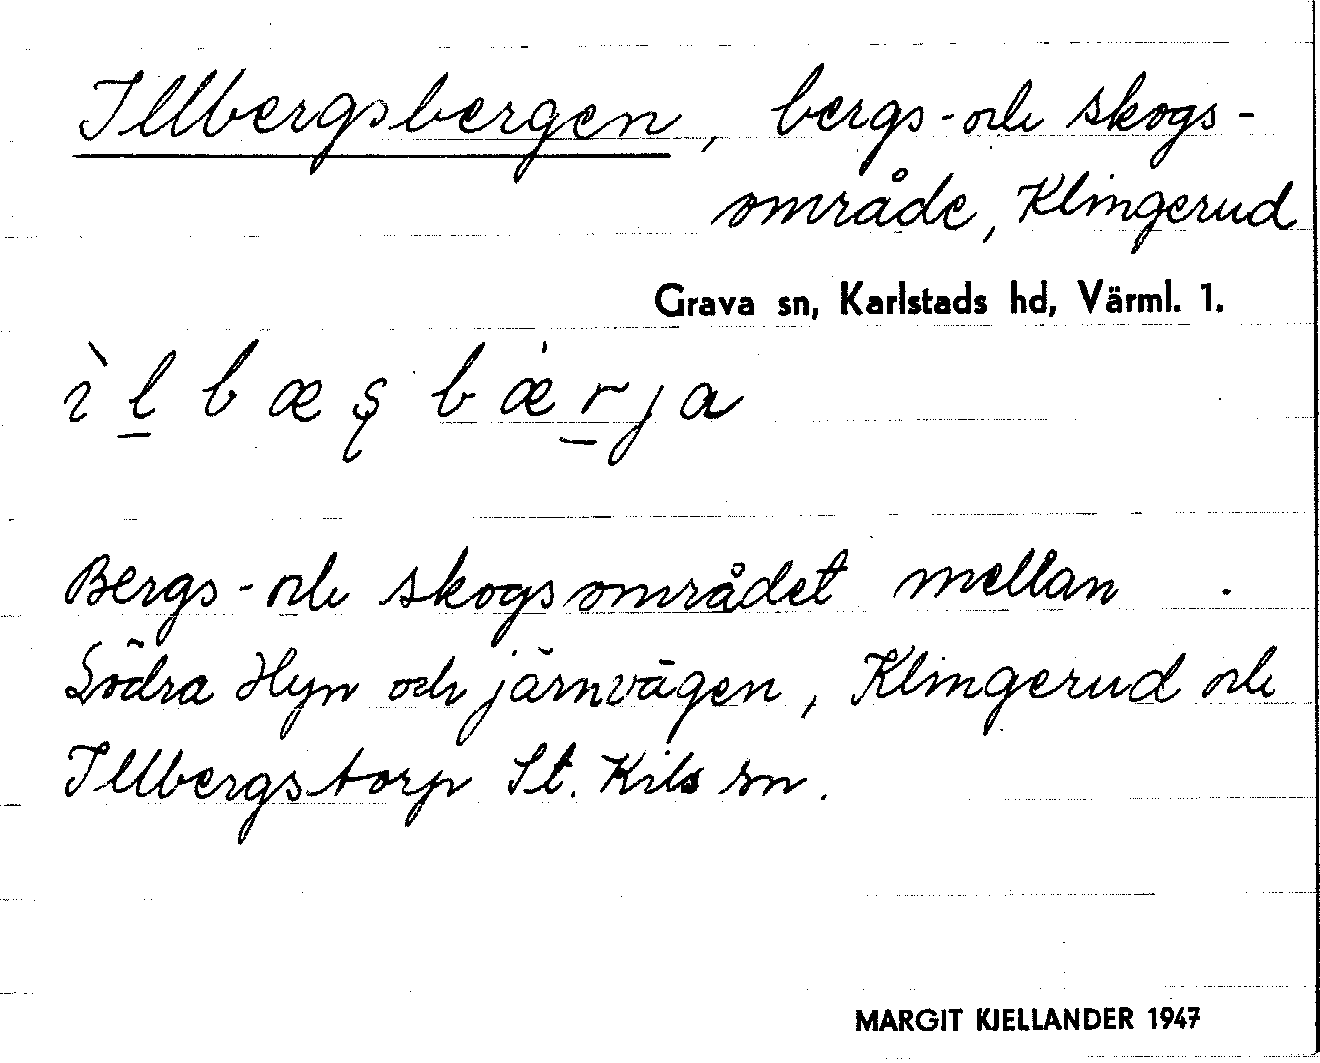 Illbergsbergen, bergs- och skogs-
område, Klingerud
Grava sn, Karlstads hd, Värml. 1.
ìl̠bæʂbæ̀r̠ja
Bergs- och skogsområdet mellan
Södra Hyn och järnvägen, Klingerud och
Illbergstorp St. Kils sn.
MARGIT KJELLANDER 1947